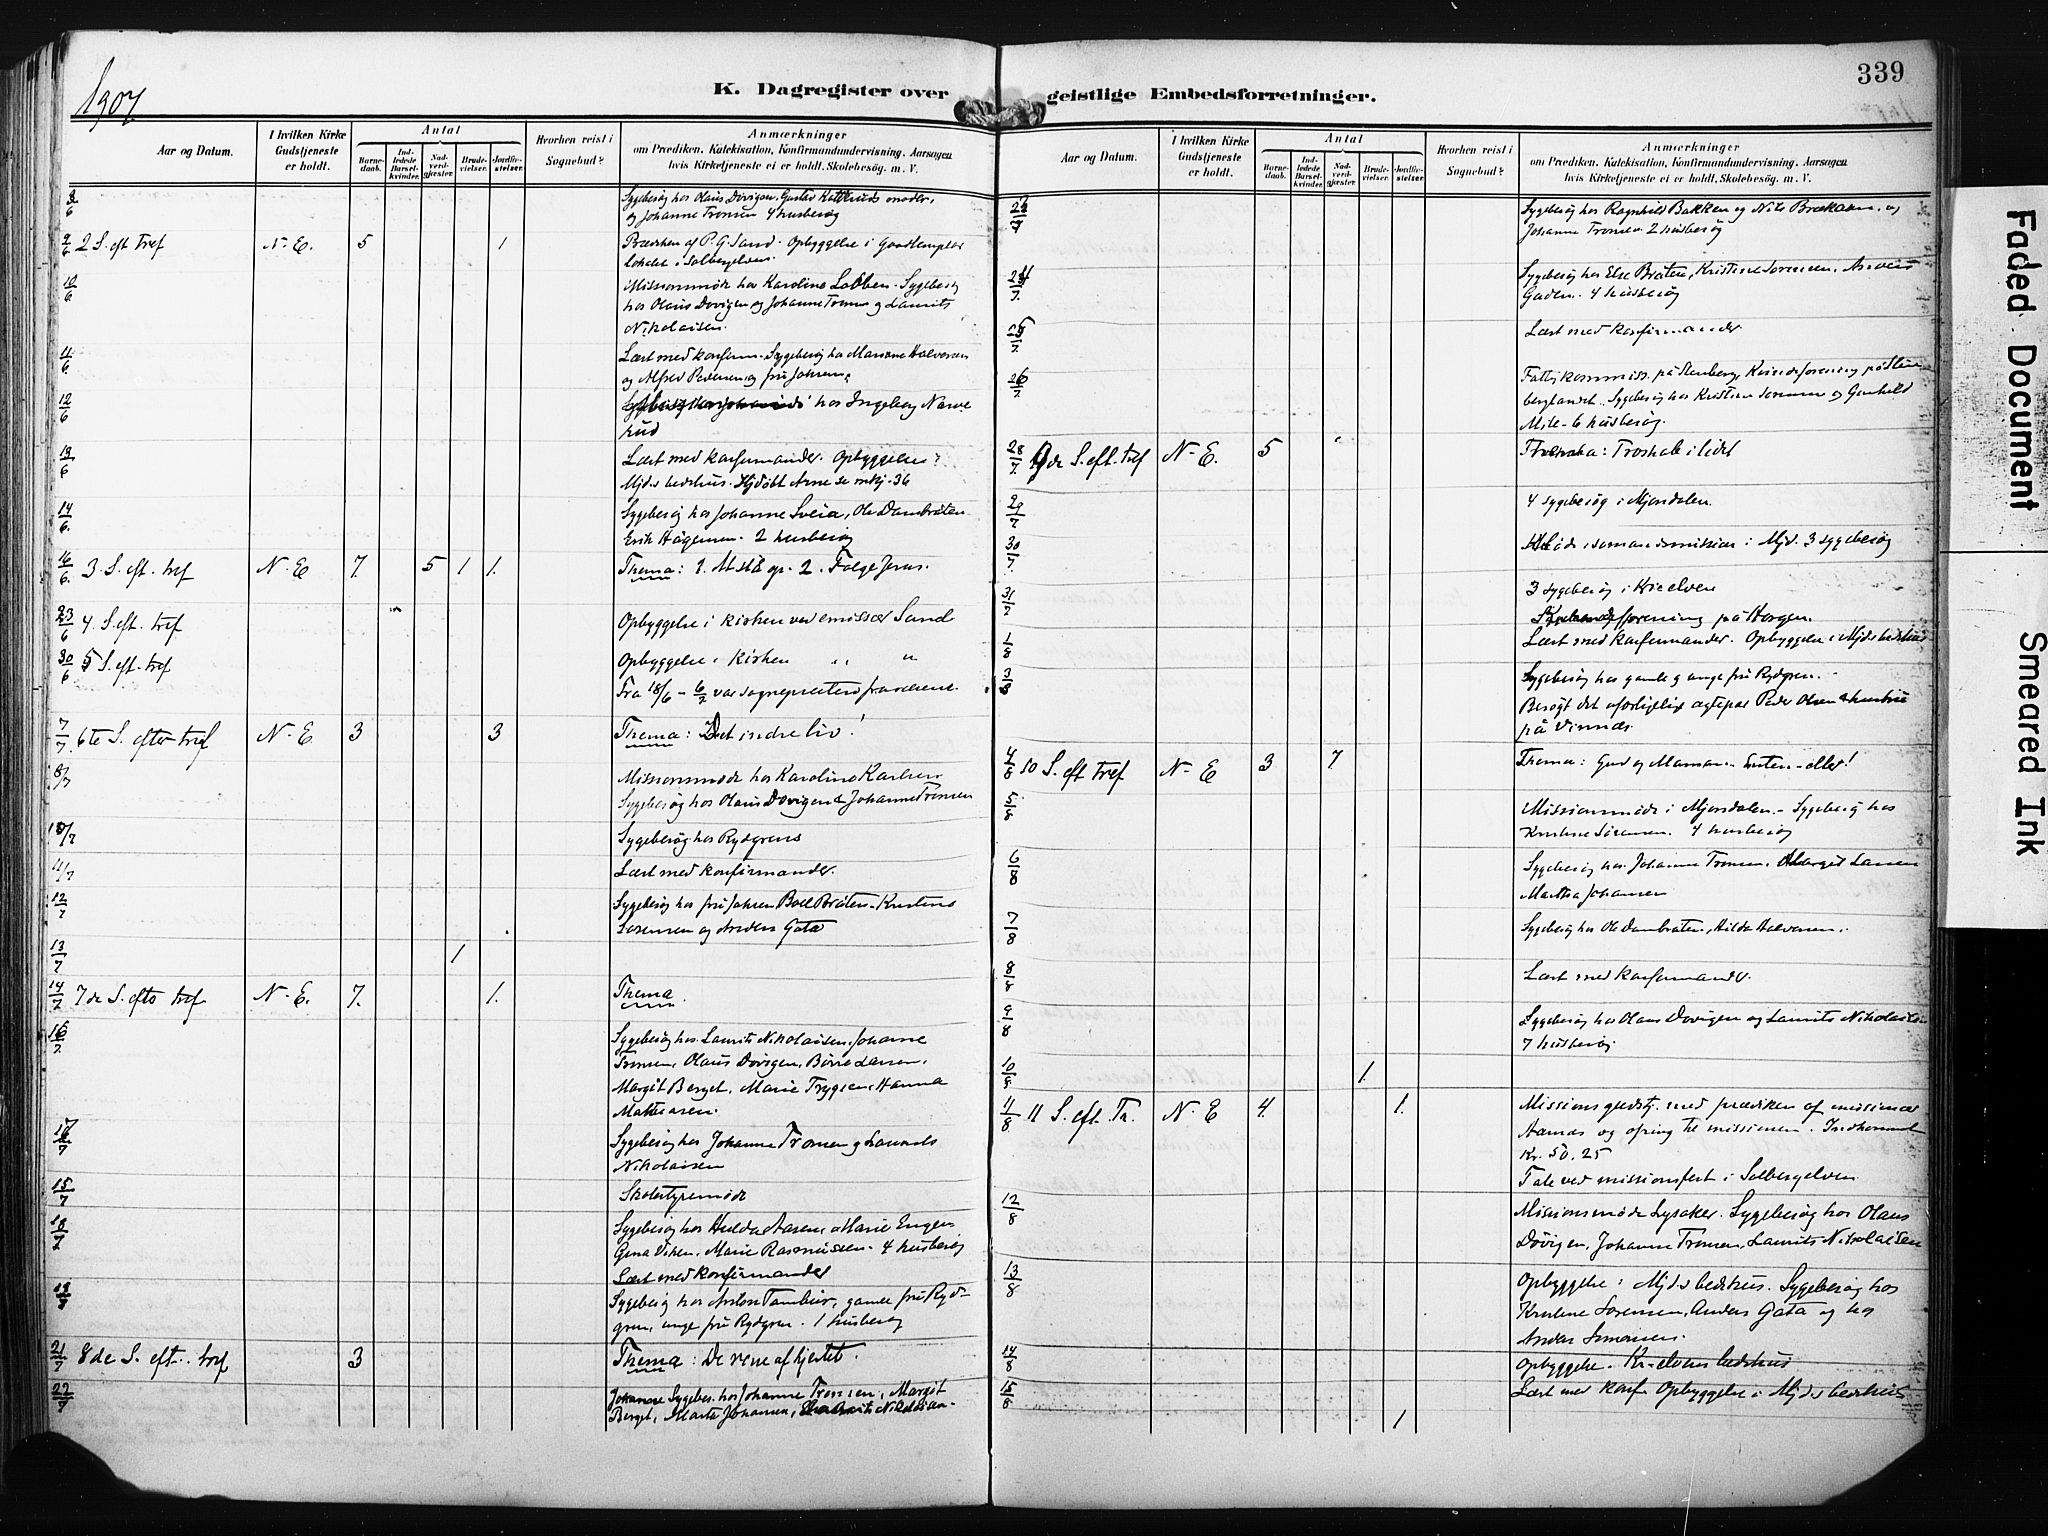 1907.
K. Dagregister over
geistlige Embedsforretninger.
339
Aar og Datum.
I hvilken Kirke Gudstjeneste er holdt.
Antal
Barnedaab.
Indledede Barselkvinder.
Nadverdgjæster.
Brudevielser.
Jordfæstelser.
Hvorhen reist i Sognebud?
Anmærkninger
om Prædiken, Katekisation, Konfirmandundervisning, Aarsagen
hvis Kirketjeneste ei er holdt, Skolebesøg. m. V.
Sygebesøg hos Olaus Dovigen, Gustav moder,
og Johanne Tronsen 4 husbesøg
9/6 2 S. eft tref N-E. 5 1 af P. G. Sand. Opbyggelse i Goodtemplar
lokalet i Solbergelven
10/6 Missionsmøde hos Karoline Sygebesøg
hos Olaus Dovigen og Johanne Tronsen og Laurits
Nikolaisen.
11/6 Læst med konfirm. Sygebesøg hos Halvorsen
og Alfred og fru Johnsen.
12/6 hos Ingeborg Narve
rud
13/6 Læst med konfirmander. Opbyggelse i
Mjd.s bedehus.
14/6 Sygebesøg hos Johanne Sveia, Ole Dambråten
Erik 2 husbesøg
16/6 3. S. eft. tref N-E 7. 5 1 1. Thema: 1. At stå op. 2. Følge Jesus.
23/6 4. S. eft. tref Opbyggelse i kirken ved emissær Sand
30/6 5 S. eft. tref Opbyggelse i kirken " "
Fra 18/6 - 6/7 var sognepresten fraværende.
7/7 6te S. efter tref N-E 3 3 Thema: Det indre liv!
8/7 Missionsmøde hos Karoline Karlsen
Sygebesøg hos Olaus Dovigen & Johanne Tronsen
10/7 Sygebesøg hos Rydgrens
11/7 Læst med konfirmander.
12/7 Sygebesøg hos fru Johnsen Bråten - Kristine
Sørensen og Anders Gata
13/7 1
14/7 7de S. efter tref N-E. 7. 1. Thema.
16/7 Sygebesøg hos Laurits Nikolaisen, Johanne
Tronsen, Olaus Dovigen, Børre Larsen,
Margit Berget, Marie Trygsen, Hanna
Mathiasen.
17/7 Sygebesøg hos Johanne Tronsen og Laurits
Nikolaisen
15/7 Skolestyremøde
18/7 Sygebesøg hos Hulda Aasen, Marie Engen
Gina Viken, Marie Rasmussen. 4 husbesøg
Læst med konfirmander
19/7 Sygebesøg hos Anton Tambur, gamle fru Ryd-
gren, unge fru Rydgren. 1 husbesøg
21/7 8de S. eft. tref 3 Thema: De rene af hjertet.
22/7 Sygebes. hos Johanne Tronsen, Margit
Berget, Marta Johansen, Laurits Nikolaisen.
Aar og Datum.
I hvilken Kirke Gudstjeneste er holdt.
Antal
Barnedaab.
Indledede Barselkvinder.
Nadverdgjæster.
Brudevielser.
Jordfæstelser.
Hvorhen reist i Sognebud?
Anmærkninger
om Prædiken, Katekisation, Konfirmandundervisning, Aarsagen
hvis Kirketjeneste ei er holdt, Skolebesøg. m. V.
Sygebesøg hos Ragnhild Bakken og Nils og
Johanne Tronsen 2 husbesøg
24/7 Sygebesøg hos Else Bråten, Kristine Sørensen, Anders
Gaden. 4 husbesøg
25/7 Læst med konfirmander
26/7 Fattigkommiss. på Stenberg, Kvindeforening på Sten
berglandet. Sygebesøg hos Kristine Sørensen og Gunhild
Mile - 6 husbesøg.
28/7 9de S. eft. tref N-E. 5 Thema: Troskab i lidet
29/7 4 sygebesøg i Mjøndalen.
30/7 Møde i sømandsmission i Mjd. 3 sygebesøg
31/7 3 sygebesøg i Krokelven
Kvindeforening på Horgen.
1/8 Læst med konfirmander. Opbyggelse i Mjd.s bedehus
3/8 Sygebesøg hos gamle og unge fru Rydgren.
Besøgt det uforligelige ægtepar Peder Olsen & hustru
på Vinnæs
4/8 10 S. eft tref N-E 3 7 Thema: Gud og Mamon. Enten - eller!
5/8 Missionsmøde i Mjøndalen. Sygebesøg hos
Kristine Sørensen. 4 husbesøg
6/8 Sygebesøg hos Johanne Tronsen, Margit Larsen
Martha Johansen
7/8 Sygebesøg hos Ole Dambråten, Hilda Halvorsen.
8/8 Læst med konfirmander.
9/8 Sygebesøg hos Olaus Dovigen og Laurits Nikolaisen
7 husbesøg
10/8 1.
11/8 11 S. eft. Tr. N-E 4. 1. Missionsgudstj. med prædiken af missionær
Aarnæs og ofring til missionen. Indkommet
Kr. 50.25
Tale ved missionsfest i Solbergelven
12/8 Missionsmøde Lysaker. Sygebesøg hos Olaus
Dovigen, Johanne Tronsen, Laurits Nikolaisen
13/8 Opbyggelse i Mjd.s bedehus. Sygebesøg hos
Kristine Sørensen, Anders Gata og hos
Anders Simonsen.
14/8 Opbyggelse. Kr-elvens bedehus
15/8 Læst med konf. Opbyggelse i Mjd.s bedehus
1
Faded Document
Smeared Ink